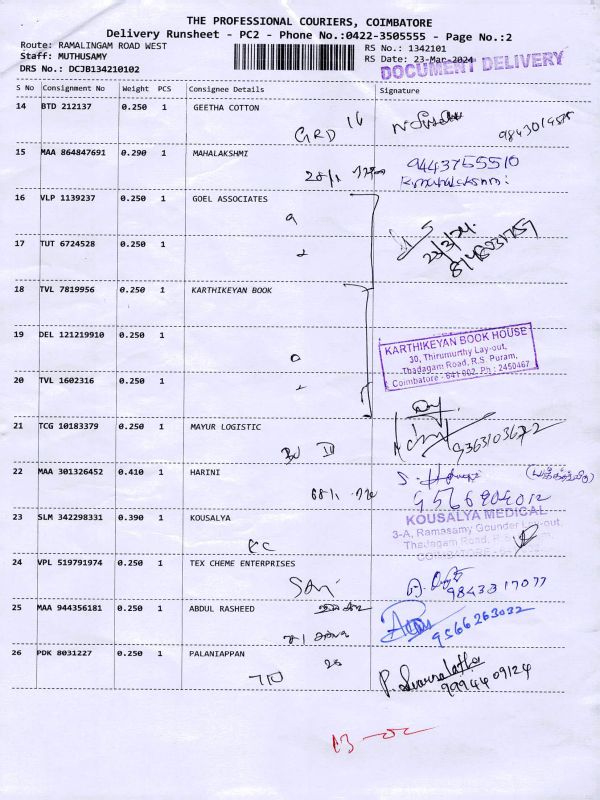 THE PROFESSIONAL COURIERS, COIMBATORE
Delivery Runsheet - PC2 - Phone No.:0422-3505555 - Page No.:2
Route: RAMALINGAM ROAD WEST
RS No.: 1342101
Staff: MUTHUSAMY
RS Date: 23-Mar-2024
DRS No.: DCJB134210102
DOCUMENT DELIVERY
S No Consignment No Weight PCS Consignee Details Signature
14 BTD 212137 0.250 1 GEETHA COTTON
GRD 16
15 MAA 864847691 0.290 1 MAHALAKSHMI
9443755510
R.mahalakshmi
16 VLP 1139237 0.250 1 GOEL ASSOCIATES
23/3/24
17 TUT 6724528 0.250 1
18 TVL 7819956 0.250 1 KARTHIKEYAN BOOK
19 DEL 121219910 0.250 1
KARTHIKEYAN BOOK HOUSE
30, Thirumurthy Lay-out,
Thadagam Road, R.S. Puram,
Coimbatore - 641 002. Ph : 2450467
20 TVL 1602316 0.250 1
21 TCG 10183379 0.250 1 MAYUR LOGISTIC
22 MAA 301326452 0.410 1 HARINI
23 SLM 342298331 0.390 1 KOUSALYA
KOUSALYA MEDICAL
3-A, Ramasamy Gounder Lay-out,
Thadagam Road, R.S.
24 VPL 519791974 0.250 1 TEX CHEME ENTERPRISES
9843317077
25 MAA 944356181 0.250 1 ABDUL RASHEED
9566263032
26 PDK 8031227 0.250 1 PALANIAPPAN
9994409124